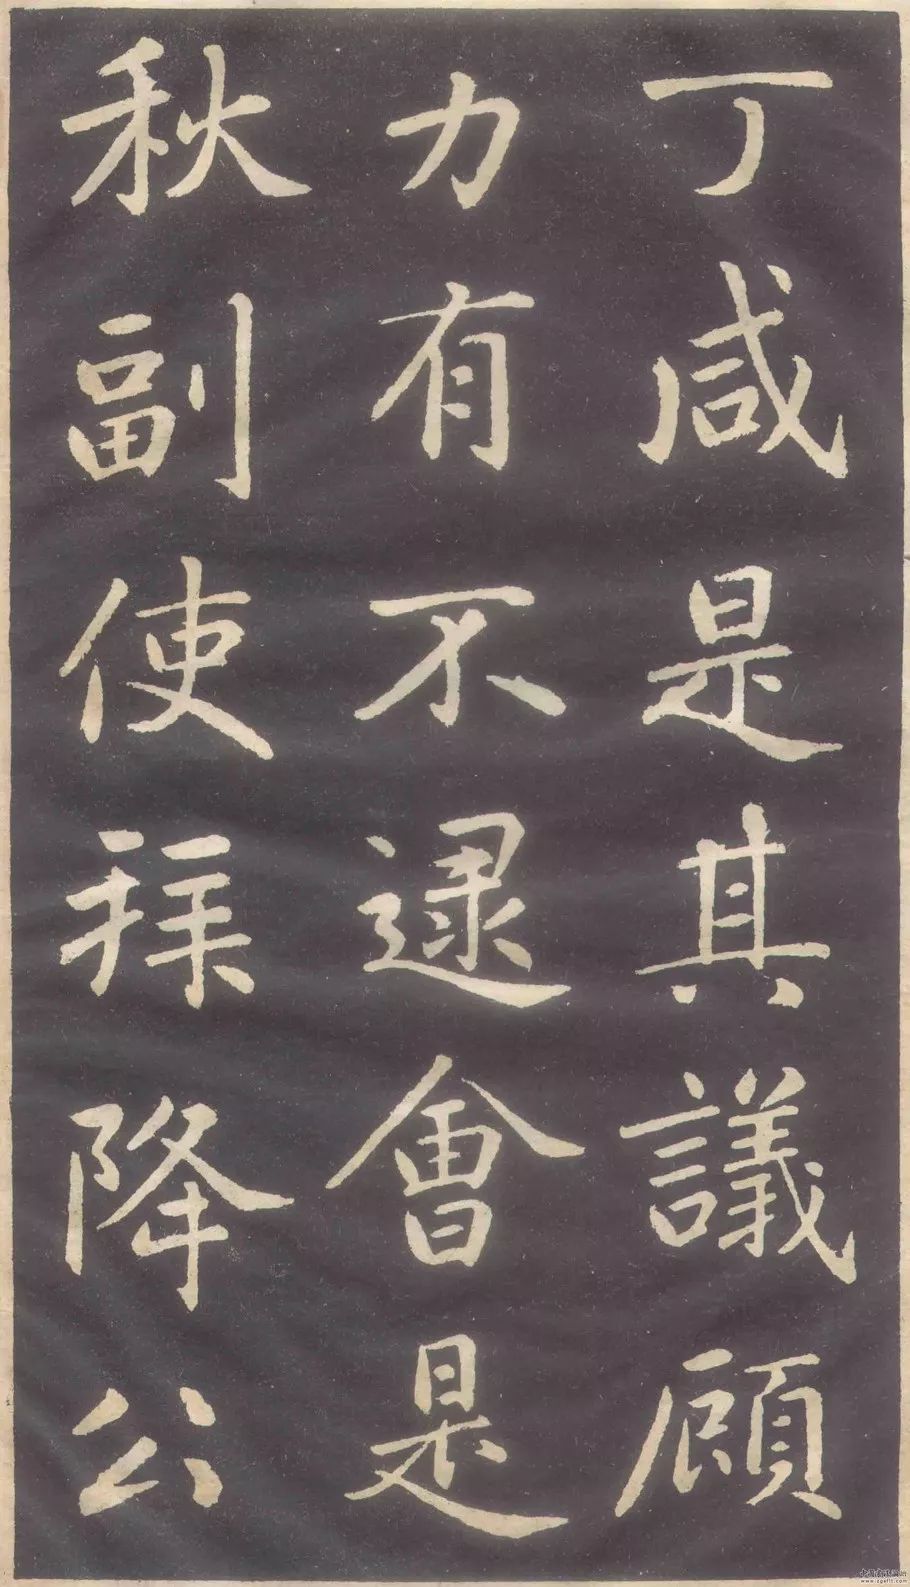 丁咸是其議顧
力有不逮會是
秋副使拜降公
www.zgeftt.com